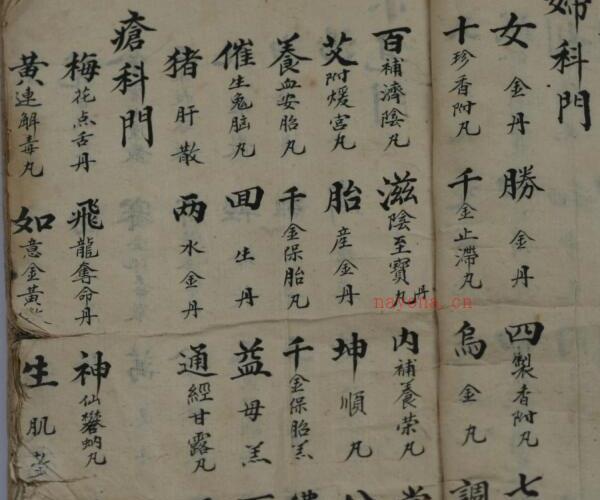 婦科門
女金丹 勝金丹 四製香附丸 七
十珍香附丸 千金止滯丸 烏金丸 調
百補濟陰丸 滋陰至寶丸丹 内補養荣丸
艾附煖宮丸 胎産金丹 坤順丸 八
養血安胎丸 千金保胎丸 千金保胎羔
催生兔脑丸 囬生丹 益母羔
猪肝散 两水金丹 通經甘露丸
瘡科門
梅花点舌丹 飛龍奪命丹 神仙礬蚋丸
黄連解毒丸 如意金黄 生肌
nayona.cn